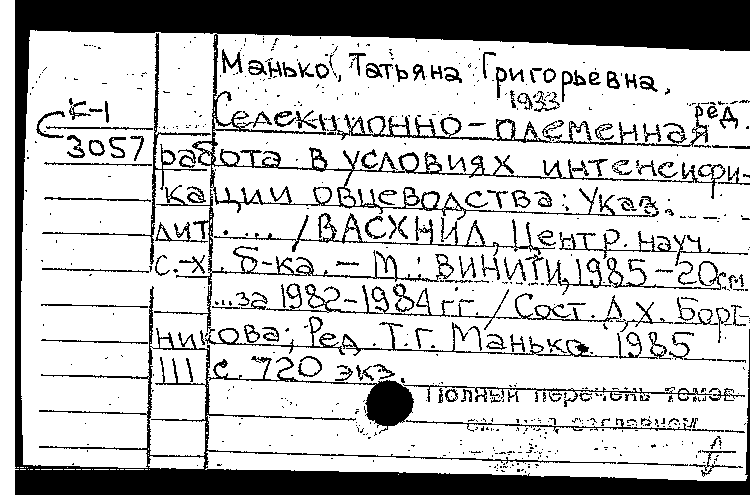 Манько, Татьяна Григорьевна,
1933
ред.
К-1
С 3057
Селекционно-племенная
работа в условиях интенсифи-
кации овцеводства: Указ.
лит. ... / ВАСХНИЛ, Центр. науч.
с.-х. б-ка. – М.: ВИНИТИ, 1985 – 20 см
...за 1982-1984 гг. / Сост. Л.Х. Борт-
никова; Ред. Т.Г. Манько. 1985
111 с. 720 экз.
Полный перечень томов
см. под заглавием